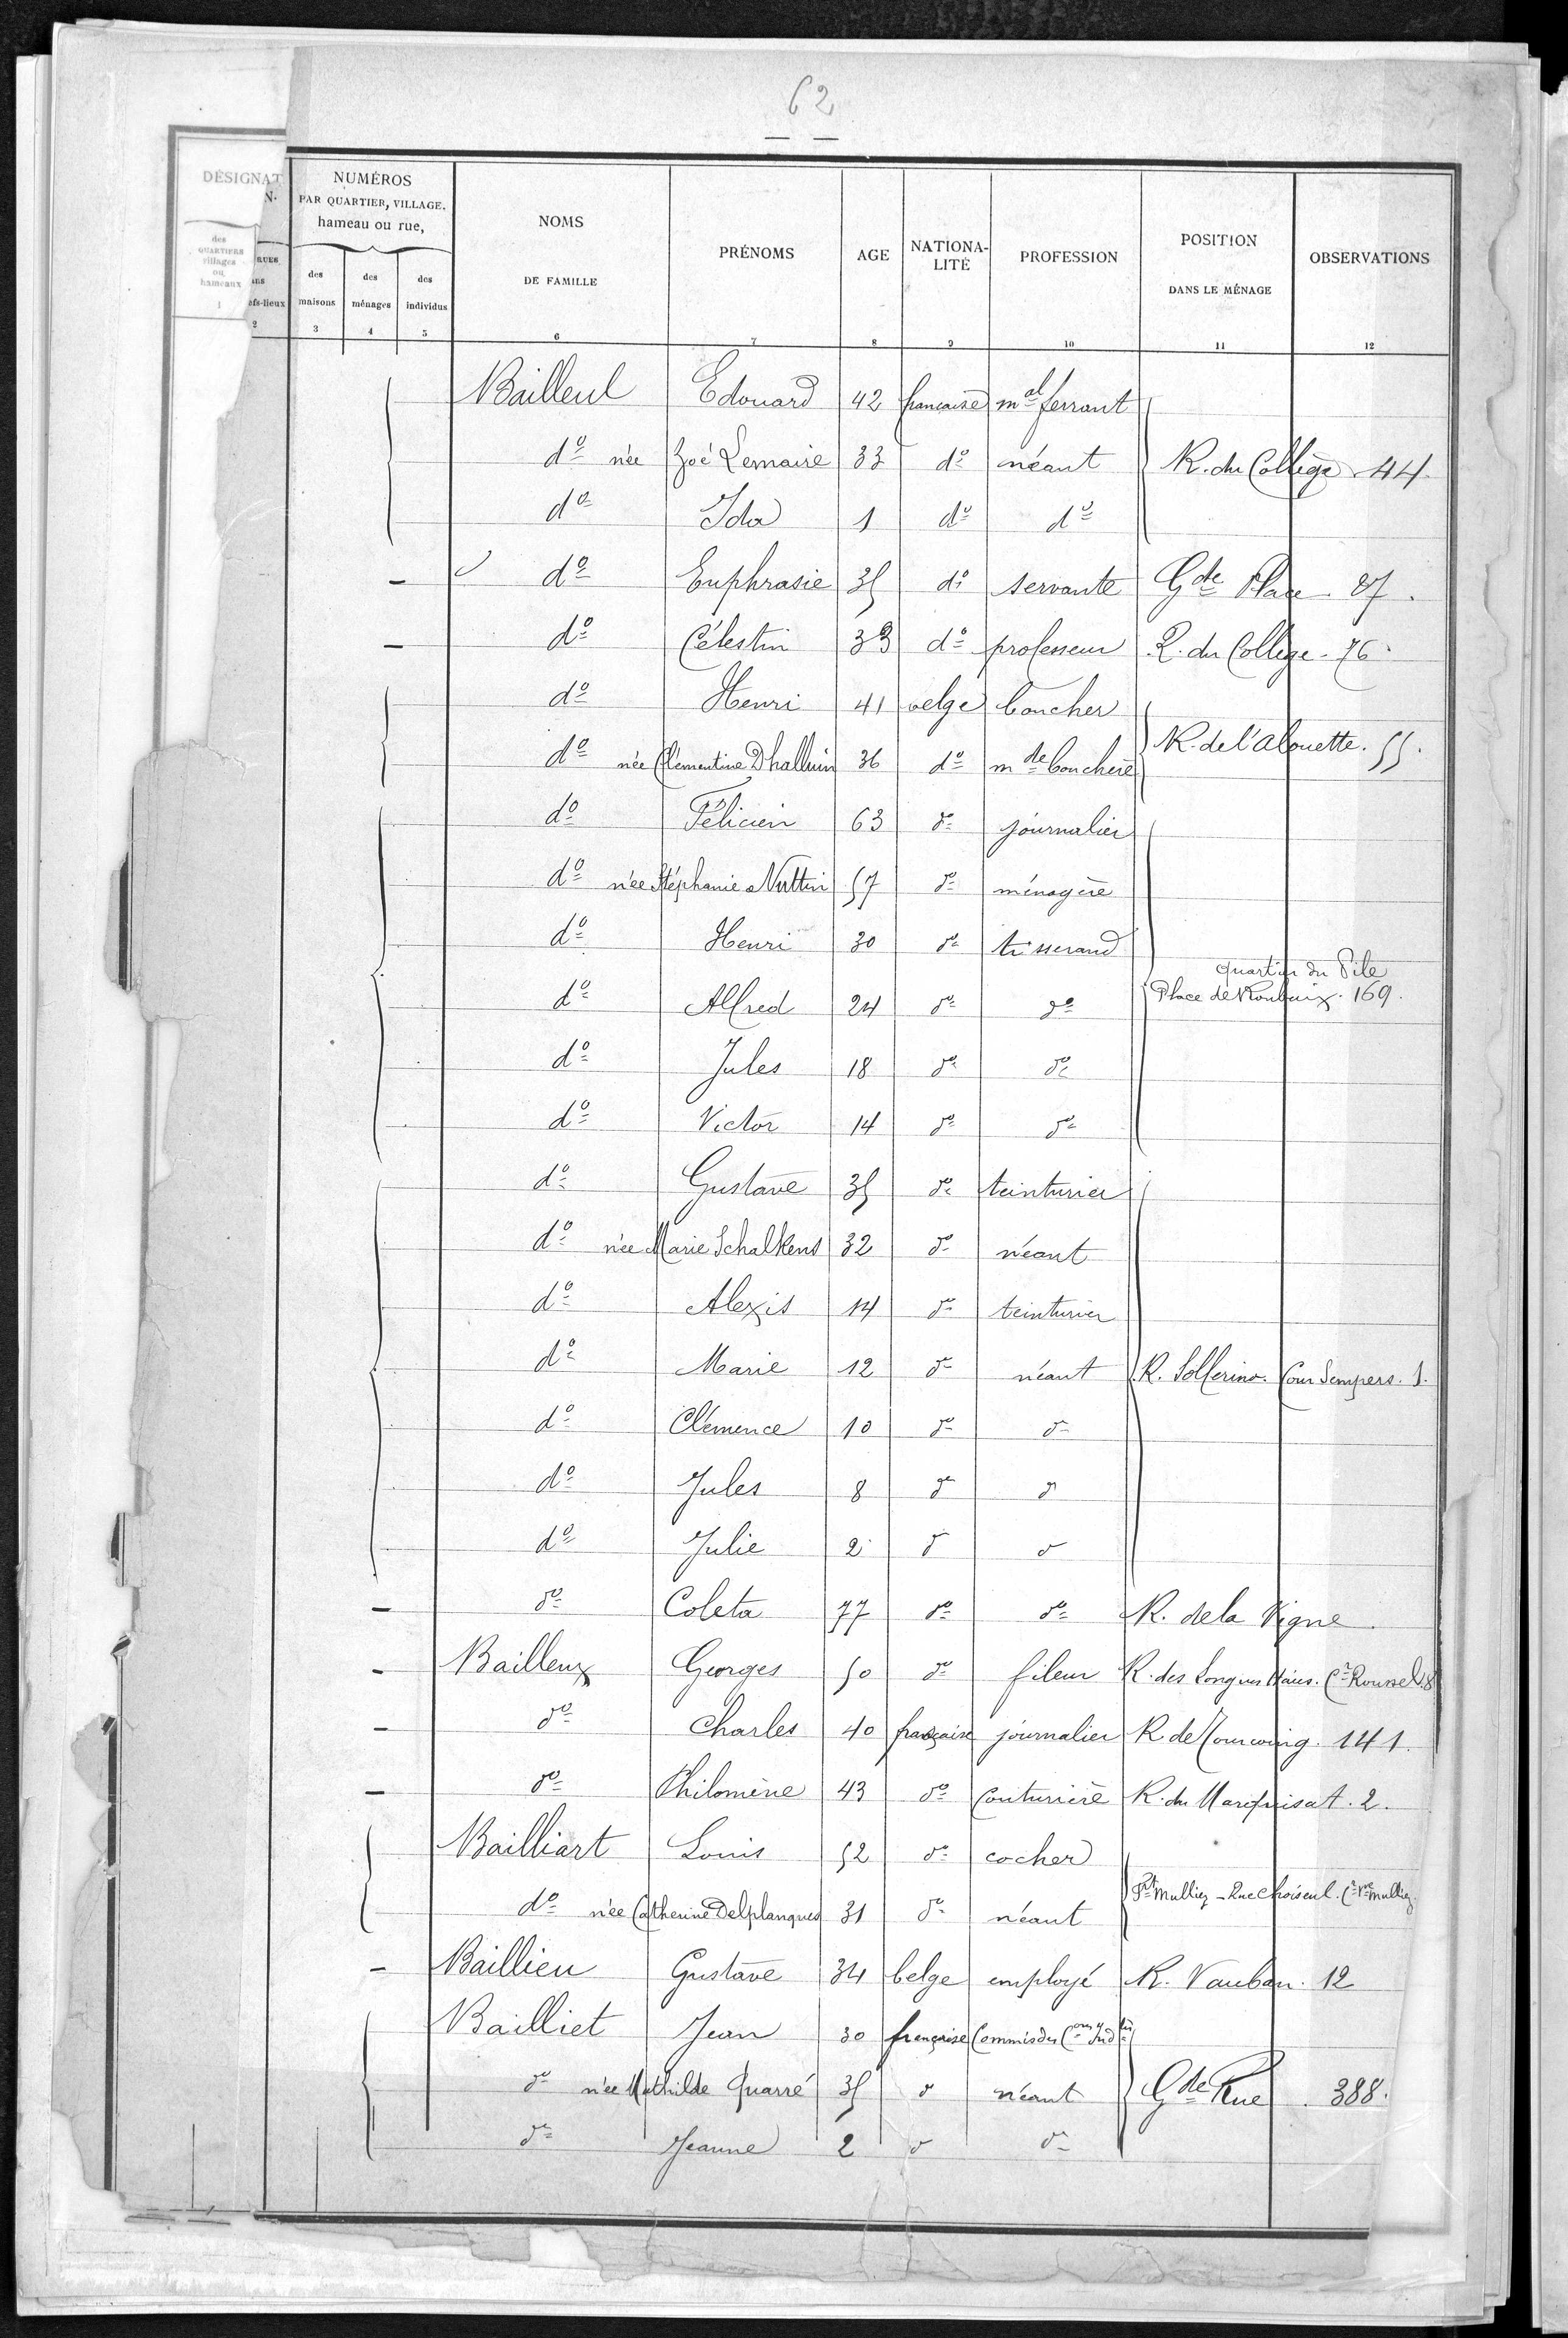 62
DÉSIGNAT
N.
des
QUARTIERS
villages
ou
hameaux
1
RUES
efs-lieux
2
NUMÉROS
PAR QUARTIER, VILLAGE,
hameau ou rue,
des maisons
3
des ménages
4
des individus
5
NOMS
DE FAMILLE
6
PRÉNOMS
7
AGE
8
NATIONA-
LITÉ
9
PROFESSION
10
POSITION
DANS LE MÉNAGE
11
OBSERVATIONS
12
Bailleul Edouard 42 française mal ferrant
do née Zoé Lemaire 33 do néant R. du Collège 44.
do Ida 1 do do
do Euphrasie 35 do servante Gde Place 27.
do Célestin 33 do professeur R. du Collège - 76.
do Henri 41 belge boucher
do née Clémentine Dhalluin 36 do mde bouchère R. de l'Alouette. 55.
do Félicien 63 do journalier
do née Stéphanie Nuttin 57 do ménagère
do Henri 30 do tisserand
quartier du Pile
do Alfred 24 do do Place de Roubaix. 169.
do Jules 18 do do
do Victor 14 do do
do Gustave 35 do teinturier
do née Marie Schalkens 32 do néant
do Alexis 14 do teinturier
do Marie 12 do néant R. Solferino. Cour Sempers. 1.
do Clémence 10 do do
do Jules 8 do do
do Julie 2 do do
do Coleta 77 do do R. de la Vigne.
Bailleux Georges 50 do fileur R. des Longues Haies. Cr Roussel 8
do Charles 40 française journalier R de Tourcoing. 141.
do Philomène 43 do Couturière R. du Marquisat. 2.
Bailliart Louis 52 do cocher
Pt Mulliez - Rue Choiseul. Cr Vve Mulliez.
do née Catherine Delplanques 31 do néant
Baillieu Gustave 34 belge employé R. Vauban. 12
Bailliet Jean 30 française Commis des Cons Indtes
do née Mathilde Quarré 35 do néant Gde Rue. 388.
do Jeanne 2 do do